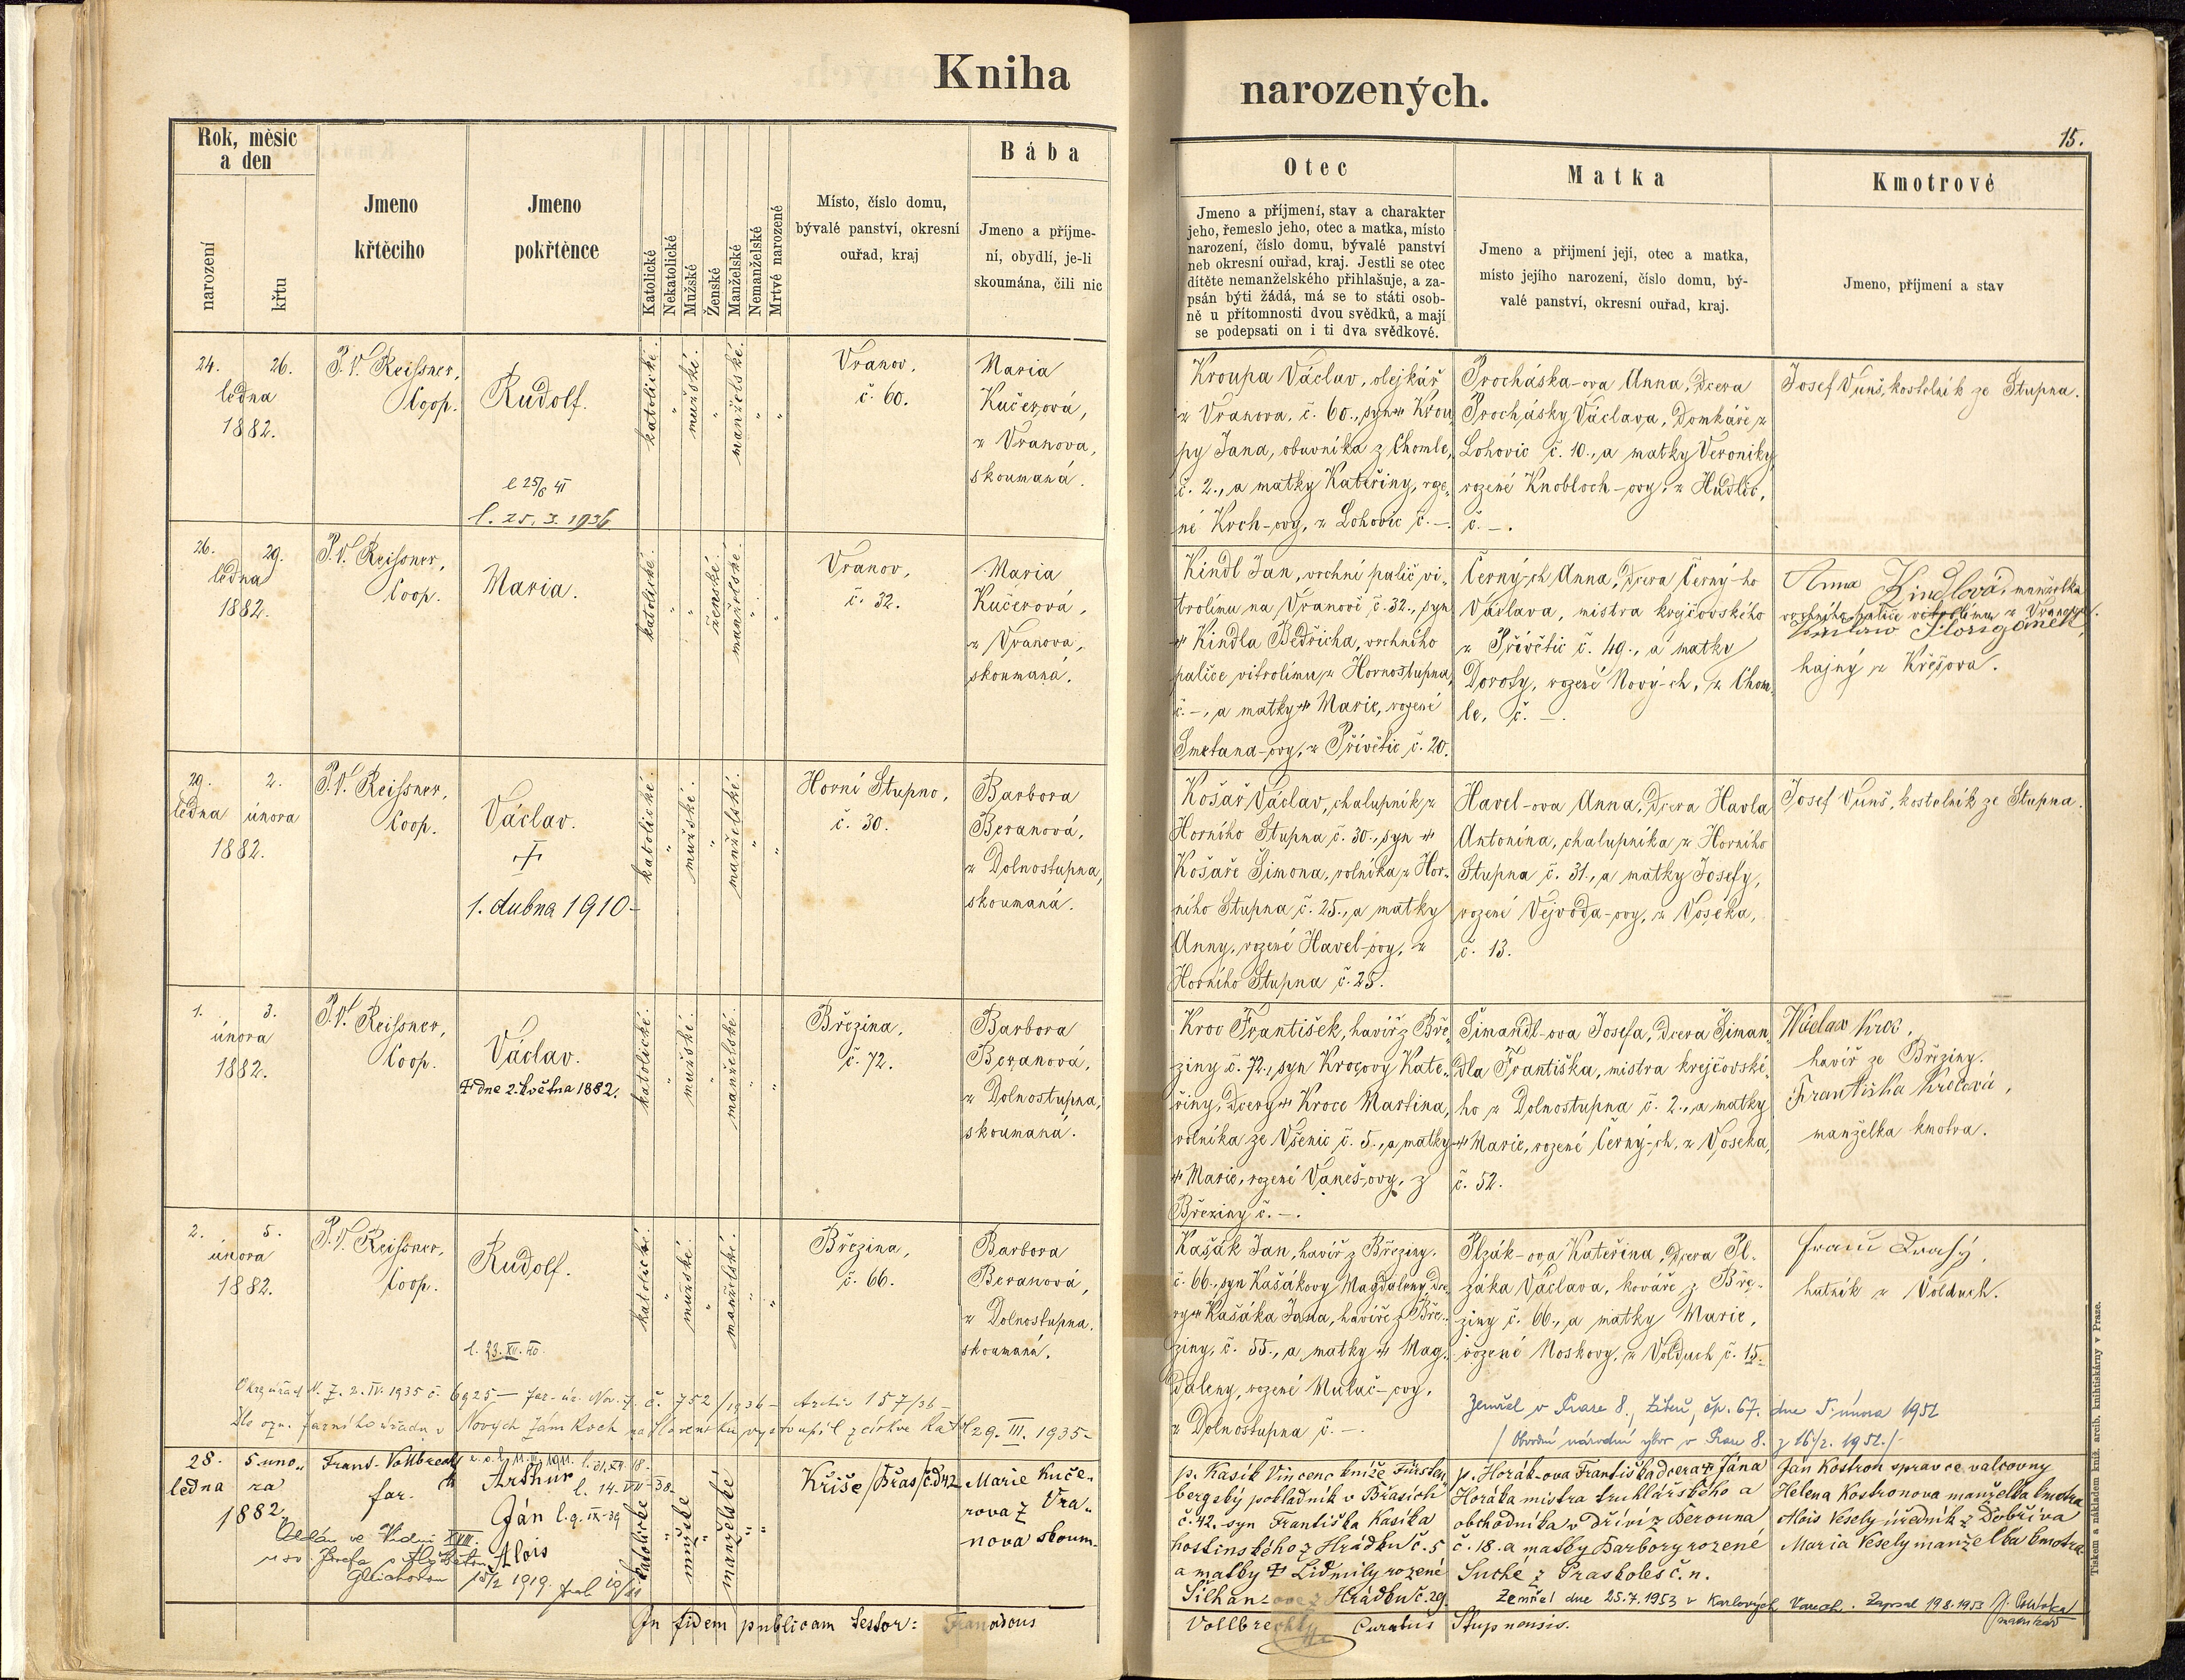 Kniha narozených.
15.
Rok, měsíc
a den
narození
křtu
Jmeno
křtěcího
Jmeno
pokřtěnce
Katolické
Nekatolické
Mužské
Ženské
Manželské
Nemanželské
Mrtvé narozené
Místo, číslo domu,
bývalé panství, okresní
ouřad, kraj
Bába
Jmeno a příjme-
ní, obydlí, je-li
skoumána, čili nic
Otec
Jmeno a příjmení, stav a charakter
jeho, řemeslo jeho, otec a matka, místo
narození, číslo domu, bývalé panství
neb okresní ouřad, kraj. Jestli se otec
dítěte nemanželského přihlašuje, a za-
psán býti žádá, má se to státi osob-
ně u přítomnosti dvou svědků, a mají
se podepsati on i ti dva svědkové.
Matka
Jmeno a přijmení její, otec a matka,
místo jejího narození, číslo domu, bý-
valé panství, okresní ouřad, kraj.
Kmotrové
Jmeno, příjmení a stav
24. 26.
ledna
1882.
P. V. Reissner,
Coop.
Rudolf.
l. 25. 3. 1936
katolické.
"
mužské.
"
manželské.
"
"
Vranov.
č. 60.
Maria
Kučerová,
z Vranova,
skoumaná.
Kroupa Václav, olejkář
z Vranova, č. 60., syn † Krou
py Jana, obuvníka z Chomle,
č. 2., a matky Kateřiny, roze-
né Koch-ovy, z Lohovic č. –.
Procháska-ova Anna, dcera
Prochásky Václava, domkáře z
Lohovic č. 10., a matky Veroniky,
rozené Knobloch-ovy, z Hudlic,
č. –.
Josef Vuuš, kostelník ze Stupna.
26. 29.
ledna
1882.
P. V. Reissner,
Coop.
Maria.
katolické.
"
ženské.
manželské.
"
"
Vranov,
č. 32.
Maria
Kučerová,
z Vranova,
skoumaná.
Kindl Jan, vrchní palič vi-
trolinu na Vranově č. 32., syn
† Kindla Bedřicha, vrchního
paliče vitrolinu z Hornostupna,
č. –, a matky † Marie, rozené
Smetana-ovy, z Přívětic č. 20.
Černý-ch Anna, dcera Černý-ho
Václava, mistra krejčovského
z Přívětic č. 49., a matky
Doroty, rozené Nový-ch, z Chom-
le, č. –.
Anna Kindlová, manželka
vrchního paliče vitrolinu z Vranova.
hajný z Křešova.
29. 2.
ledna února
1882.
P. V. Reissner,
Coop.
Václav.
†
1. dubna 1910-
katolické.
"
mužské.
"
manželské.
"
"
Horní Stupno,
č. 30.
Barbora
Beranová,
z Dolnostupna,
skoumaná.
Košař Václav, chalupník z
Horního Stupna č. 30., syn †
Košaře Šimona, rolníka z Hor-
ního Stupna č. 25., a matky
Anny, rozené Havel-ovy, z
Horního Stupna č. 25.
Havel-ova Anna, dcera Havla
Antonína, chalupníka z Horního
Stupna č. 31., a matky Josefy,
rozené Vejvoda-ovy, z Voseka,
č. 13.
Josef Vuuš, kostelník ze Stupna.
1. 3.
února
1882.
P. V. Reissner,
Coop.
Václav.
† dne 2. května 1882.
katolické.
"
mužské.
"
manželské.
"
"
Březina,
č. 72.
Barbora
Beranová,
z Dolnostupna,
skoumaná.
Kroc František, havíř z Bře-
ziny č. 72., syn Krocovy Kate-
řiny, dcery † Kroce Martina,
rolníka ze Všenic č. 5., a matky
† Marie, rozené Vaneš-ovy, z
Březiny č. –.
Šimandl-ova Josefa, dcera Šiman-
dla Františka, mistra krejčovské-
ho z Dolnostupna č. 2., a matky
† Marie, rozené Černý-ch, z Voseka,
č. 52.
Václav Kroc,
havíř ze Březiny.
Františka Krocová,
manželka kmotra.
2. 5.
února
1882.
P. V. Reissner,
Coop.
Rudolf.
l. 23. XII. 40.
katolické.
"
mužské.
"
manželské.
"
"
Březina,
č. 66.
Barbora
Beranová,
z Dolnostupna.
skoumaná.
Kašák Jan, havíř z Březiny,
č. 66., syn Kašákovy Magdaleny, dce-
ry † Kašáka Jana, havíře z Bře-
ziny, č. 55., a matky † Mag-
daleny, rozené Mulač-ovy,
z Dolnostupna č. –.
Plzák-ova Kateřina, dcera Pl-
záka Václava, kováře z Bře-
ziny č. 66., a matky Marie,
rozené Noskovy, z Volduch č. 15.
hutník z Volduch.
Okres. úřad N. Z. 2. IV. 1935 č. 6925 – far. úř. Nov. Z. č. 752/1936 – Archiv 157/36 –
Dle ozn. farního úřadu v Nových Zámkoch na Slovensku vystoupil z církve kat. 29. III. 1935-
Zemřel v Praze 8., Libeň, čp. 67. dne 5. února 1952
/ Obvodní národní výbor v Praze 8. z 16/2. 1952./
28. 5. uno-
ledna ra
1882.
Frant. Vollbrecht
far.
Arthur
Ján
Alois
l. 14. VII - 38-
l. 9. IX - 39
Oddán ve Vídni XVIII.
u sv. Josefa s Alžbětou
15/2 1919.
katolické
"
mužské
"
manželské
"
"
Kříše/Břas/č.d 42
Marie Kuče-
rova z Vra-
nova skoum-
p. Kasík Vincenc kníže Fürsten-
bergský pokladník v Břasích
č. 42. syn Františka Kasíka
hostinského z Hrádku č. 5
a matky † Lidmily rozené
Šilhanzove z Hrádku č. 29.
p. Horák-ova Františka dcera † Jána
Horáka mistra truhlářského a
obchodníka v dříví z Berouna
č. 18. a matky Barbory rozené
Suché z Praskoles č. n.
Zemřel dne 25.7.1953 v Karlových Varech. Zapsal 19.8.1953
matrikář
Ján Kostron spravce valcovny
Helena Kostronova manželka kmotra
Alois Vesely úředník z Dobříva
Maria Vesely manželka kmotra.
In fidem publicam testor: Franciscus Vollbrecht Curatus Stupnensis.
Tiskem a nákladem kníž. arcib. knihtiskárny v Praze.